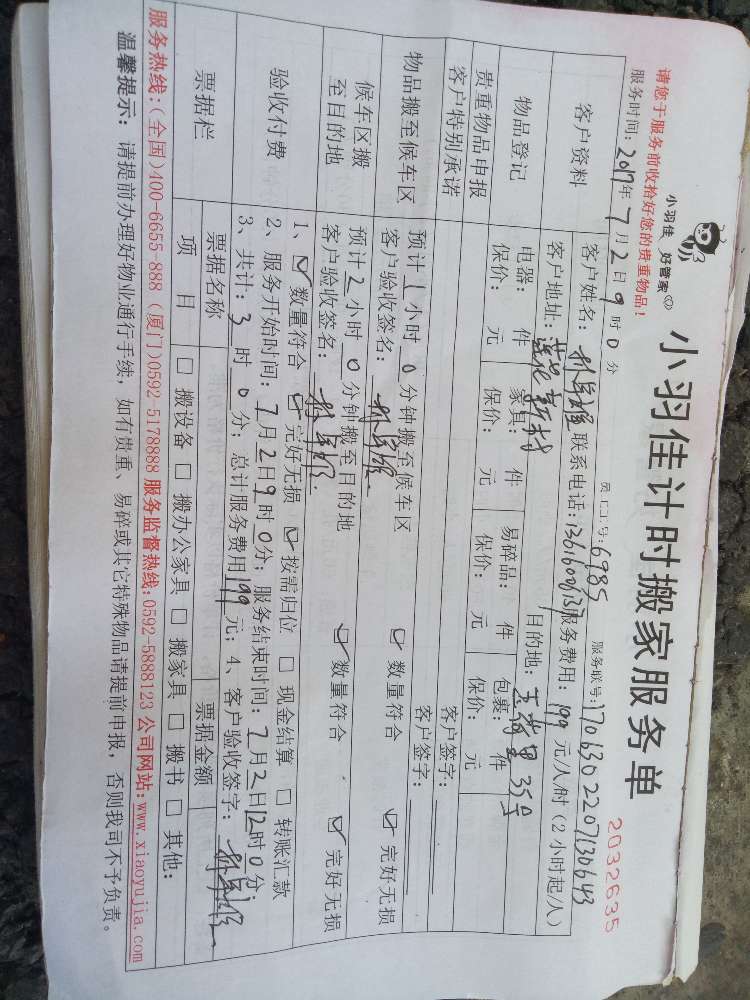 小羽佳 好管家
小羽佳计时搬家服务单
2032635
请您于服务前收拾好您的贵重物品!
员工号:6985 服务联号:1706302207130643
服务时间:2017年7月2日9时0分
客户资料 客户姓名: 联系电话: 服务费用:199元/人/时(2小时起/人)
客户地址:莲花新村 目的地: 35号
物品登记 电器: 件 家具: 件 易碎品: 件 包裹: 件
保价: 元 保价: 元 保价: 元 保价: 元
贵重物品申报 客户签字:
客户特别承诺 客户签字:
物品搬至候车区 预计1小时0分钟搬至候车区 ☑数量符合 ☑完好无损
客户验收签名:
候车区搬至目的地 预计2小时0分钟搬至目的地 ☑数量符合 ☑完好无损
客户验收签名:
验收付费 1、☑数量符合 ☑完好无损 ☑按需归位 □现金结算 □转账汇款
2、服务开始时间:7月2日9时0分;服务结束时间:7月2日12时0分;
3、共计:3时0分;总计服务费用199元;4、客户验收签字:
票据栏 票据名称 票据金额
项目 □搬设备 □搬办公家具 □搬家具 □搬书 □其他:
服务热线:(全国)400-6655-888 (厦门)0592-5178888 服务监督热线:0592-5888123 公司网站:www.xiaoyujia.com
温馨提示: 请提前办理好物业通行手续,如有贵重、易碎或其它特殊物品请提前申报,否则我司不予负责。